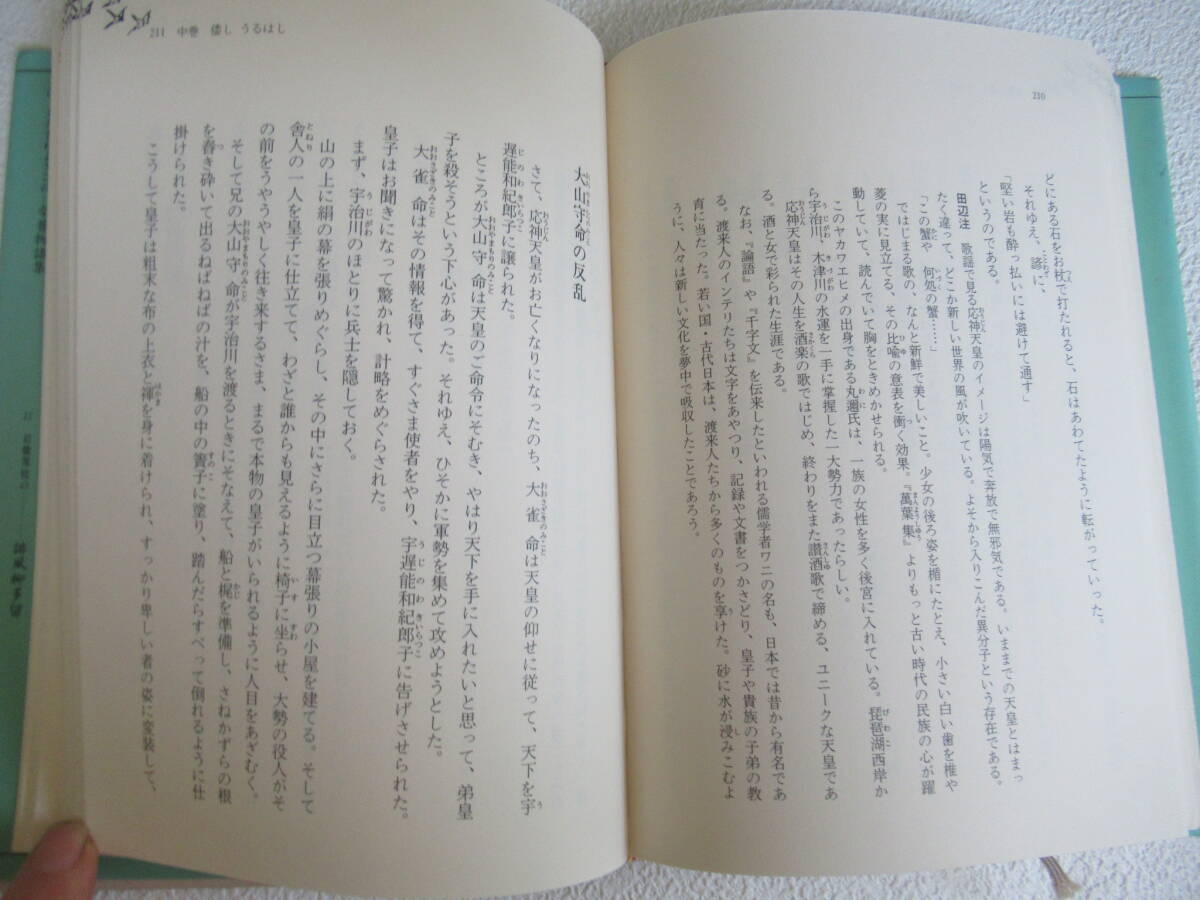 210
どにある石をお杖で打たれると、石はあわてたように転がっていった。
それゆえ、諺に、
「堅い岩も酔っ払いには避けて通す」
というのである。
田辺注 歌謡で見る応神天皇のイメージは陽気で奔放で無邪気である。いままでの天皇とはまっ
たく違って、どこか新しい世界の風が吹いている。よそから入りこんだ異分子という存在である。
「この蟹や 何処の蟹……」
ではじまる歌の、なんと新鮮で美しいこと。少女の後ろ姿を楯にたとえ、小さい白い歯を椎や
菱の実に見立てる、その比喩の意表を衝く効果。『萬葉集』よりもっと古い時代の民族の心が躍
動していて、読んでいて胸をときめかせられる。
このヤカワエヒメの出身である丸邇氏は、一族の女性を多く後宮に入れている。琵琶湖西岸か
ら宇治川、木津川の水運を一手に掌握した一大勢力であったらしい。
応神天皇はその人生を酒楽の歌ではじめ、終わりをまた讃酒歌で締める、ユニークな天皇であ
る。酒と女で彩られた生涯である。
なお、『論語』や『千字文』を伝来したといわれる儒学者ワニの名も、日本では昔から有名であ
る。渡来人のインテリたちは文字をあやつり、記録や文書をつかさどり、皇子や貴族の子弟の教
育に当たった。若い国・古代日本は、渡来人たちから多くのものを享けた。砂に水が浸みこむよ
うに、人々は新しい文化を夢中で吸収したことであろう。
211 中巻 倭し うるはし
大山守命の反乱
さて、応神天皇がお亡くなりになったのち、大雀命は天皇の仰せに従って、天下を宇
遅能和紀郎子に譲られた。
ところが大山守命は天皇のご命令にそむき、やはり天下を手に入れたいと思って、弟皇
子を殺そうという下心があった。それゆえ、ひそかに軍勢を集めて攻めようとした。
大雀命はその情報を得て、すぐさま使者をやり、宇遅能和紀郎子に告げさせられた。
皇子はお聞きになって驚かれ、計略をめぐらされた。
まず、宇治川のほとりに兵士を隠しておく。
山の上に絹の幕を張りめぐらし、その中にさらに目立つ幕張りの小屋を建てる。そして
舎人の一人を皇子に仕立てて、わざと誰からも見えるように椅子に坐らせ、大勢の役人がそ
の前をうやうやしく往き来するさま、まるで本物の皇子がいられるように人目をあざむく。
そして兄の大山守命が宇治川を渡るときにそなえて、船と梶を準備し、さねかずらの根
を舂き砕いて出るねばねばの汁を、船の中の簀子に塗り、踏んだらすべって倒れるように仕
掛けられた。
こうして皇子は粗末な布の上衣と褌を身に着けられ、すっかり卑しい者の姿に変装して、
誹風柳多留